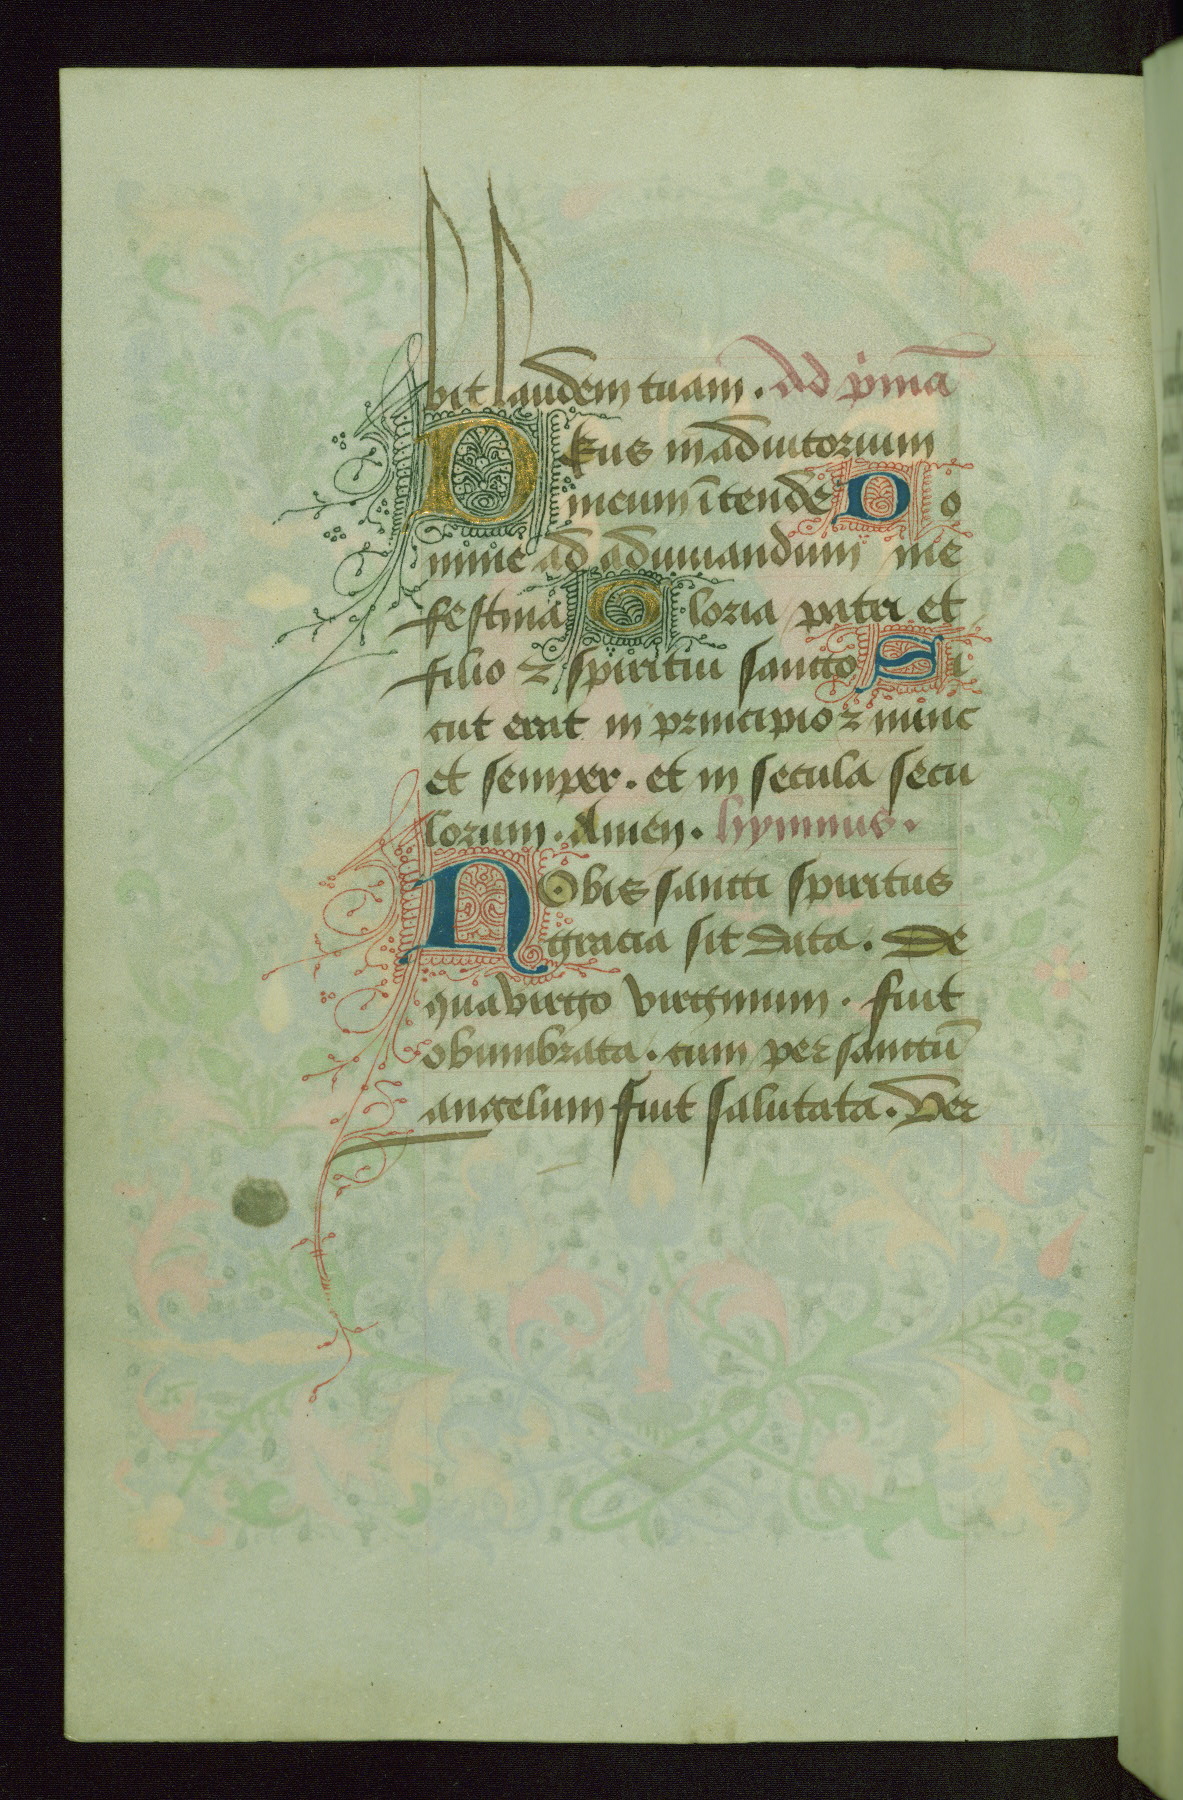 bit laudem tuam. Ad p̄mā
DEus in adiutorium
meum ītende Do
mine ad adiuuandum me
festina Gloria patri et
filio ⁊ spiritui sancto Si
cut erat in principio ⁊ nunc
et semper. et in secula secu
lorum. Amen. hymnus.
NObis sancti spiritus
gracia sit data. De
qua virgo virginum. fuit
obumbrata. cum per sanctū
angelum fuit salutata. Ver